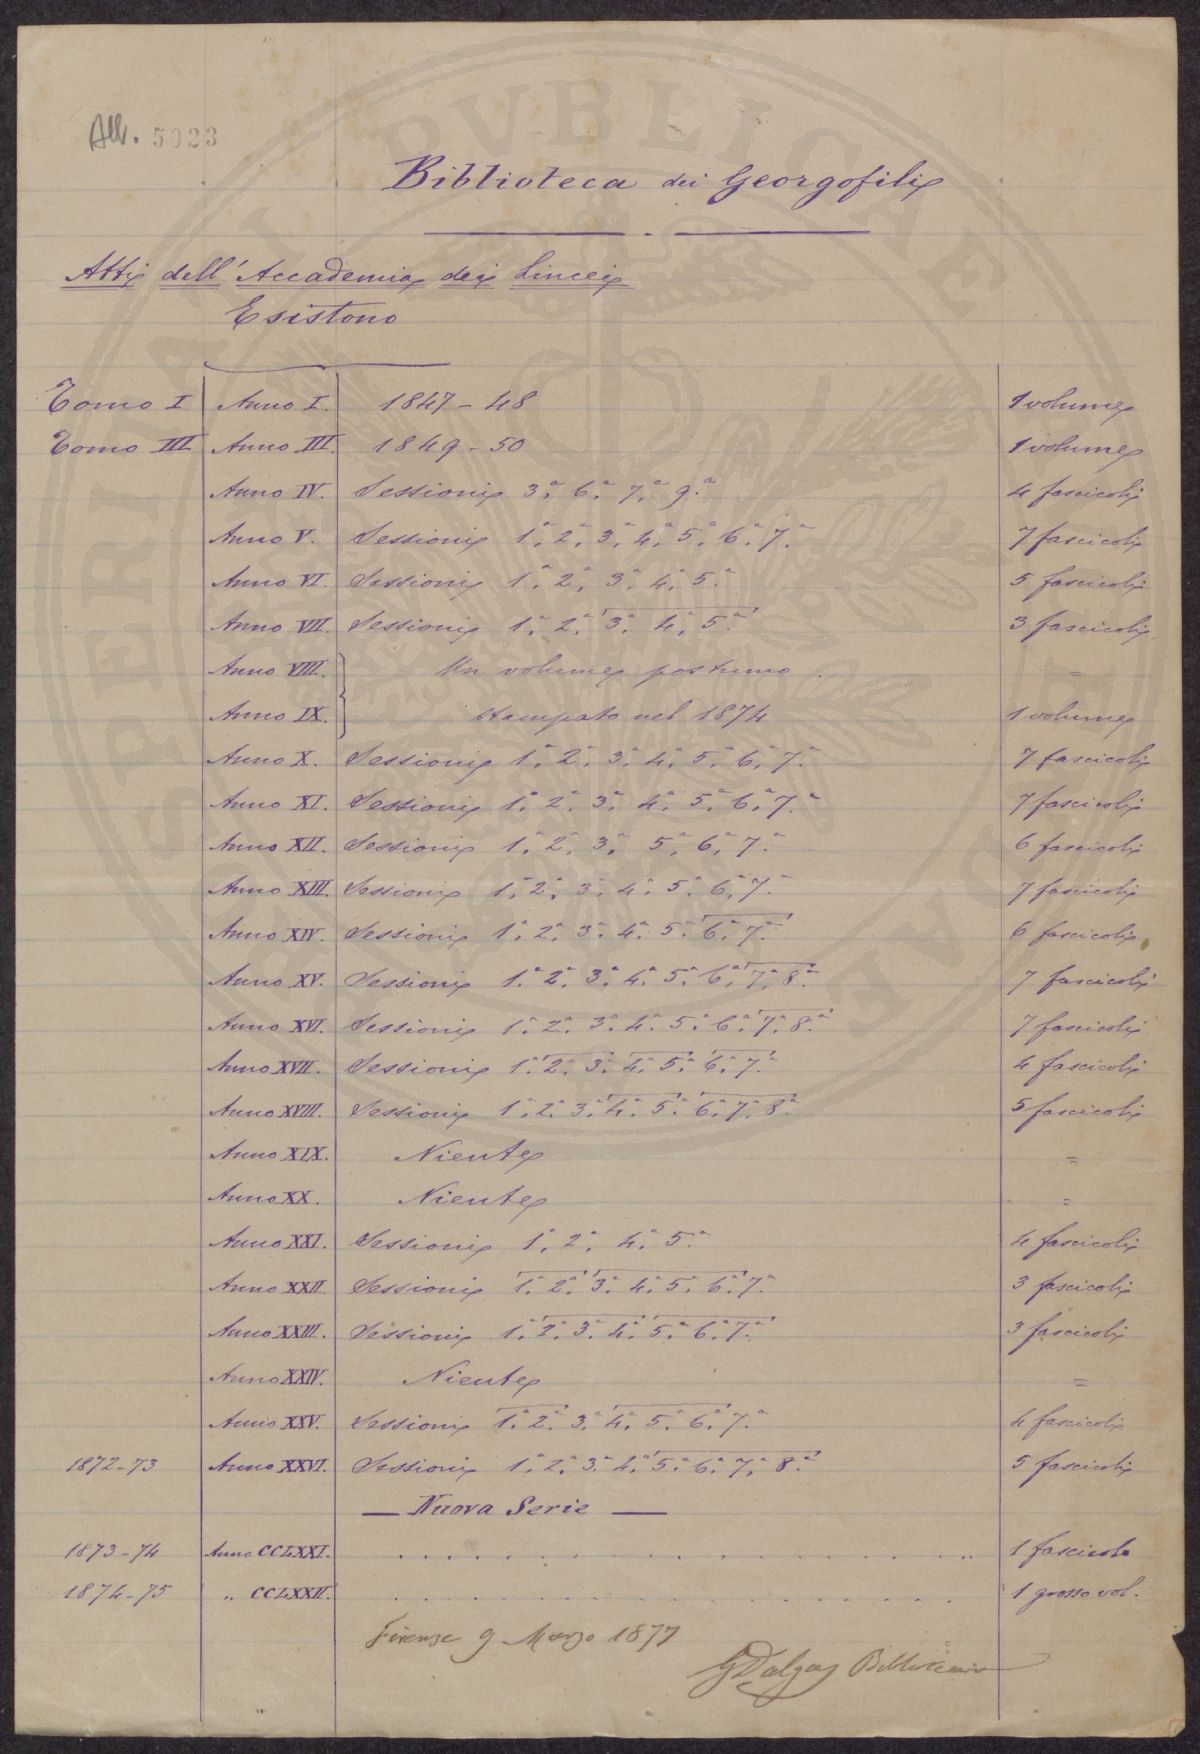 All. 5023
Biblioteca dei Georgofili
Atti dell'Accademia dei Lincei
Esistono
Tomo I Anno I. 1847-48 1 volume
Tomo III Anno III. 1849-50 1 volume
Anno IV. Sessioni 3.ª 6.ª 7.ª 9.ª 4 fascicoli
Anno V. Sessioni 1.ª 2.ª 3.ª 4.ª 5.ª 6.ª 7.ª 7 fascicoli
Anno VI. Sessioni 1.ª 2.ª 3.ª 4.ª 5.ª 5 fascicoli
Anno VII. Sessioni 1.ª 2.ª 3.ª 4.ª 5.ª 3 fascicoli
Anno VIII. Un volume postumo. =
Anno IX. stampato nel 1874 1 volume
Anno X. Sessioni 1.ª 2.ª 3.ª 4.ª 5.ª 6.ª 7.ª 7 fascicoli
Anno XI. Sessioni 1.ª 2.ª 3.ª 4.ª 5.ª 6.ª 7.ª 7 fascicoli
Anno XII. Sessioni 1.ª 2.ª 3.ª 5.ª 6.ª 7.ª 6 fascicoli
Anno XIII. Sessioni 1.ª 2.ª 3.ª 4.ª 5.ª 6.ª 7.ª 7 fascicoli
Anno XIV. Sessioni 1.ª 2.ª 3.ª 4.ª 5.ª 6.ª 7.ª 6 fascicoli
Anno XV. Sessioni 1.ª 2.ª 3.ª 4.ª 5.ª 6.ª 7.ª 8.ª 7 fascicoli
Anno XVI. Sessioni 1.ª 2.ª 3.ª 4.ª 5.ª 6.ª 7.ª 8.ª 7 fascicoli
Anno XVII. Sessioni 1.ª 2.ª 3.ª 4.ª 5.ª 6.ª 7.ª 4 fascicoli
Anno XVIII. Sessioni 1.ª 2.ª 3.ª 4.ª 5.ª 6.ª 7.ª 8.ª 5 fascicoli
Anno XIX. Niente =
Anno XX. Niente =
Anno XXI. Sessioni 1.ª 2.ª 4.ª 5.ª 4 fascicoli
Anno XXII. Sessioni 1.ª 2.ª 3.ª 4.ª 5.ª 6.ª 7.ª 3 fascicoli
Anno XXIII. Sessioni 1.ª 2.ª 3.ª 4.ª 5.ª 6.ª 7.ª 3 fascicoli
Anno XXIV. Niente =
Anno XXV. Sessioni 1.ª 2.ª 3.ª 4.ª 5.ª 6.ª 7.ª 4 fascicoli
1872-73 Anno XXVI. Sessioni 1.ª 2.ª 3.ª 4.ª 5.ª 6.ª 7.ª 8.ª 5 fascicoli
— Nuova Serie —
1873-74 Anno CCLXXI. . . . . . . . . . . . . . . . . . 1 fascicolo
1874-75 " CCLXXII. . . . . . . . . . . . . . . . . . 1 grosso vol.
Firenze 9 Marzo 1877
G Dalgas Bibliotecario